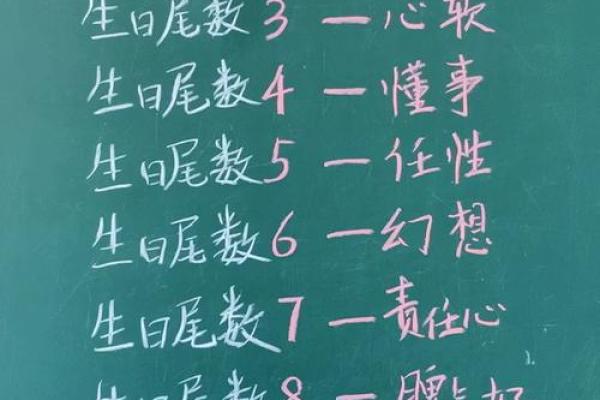 生日尾数3 — 心软
生日尾数4 — 懂事
生日尾数5 — 任性
生日尾数6 — 幻想
生日尾数7 — 责任心
生日尾数8 — 脾气好